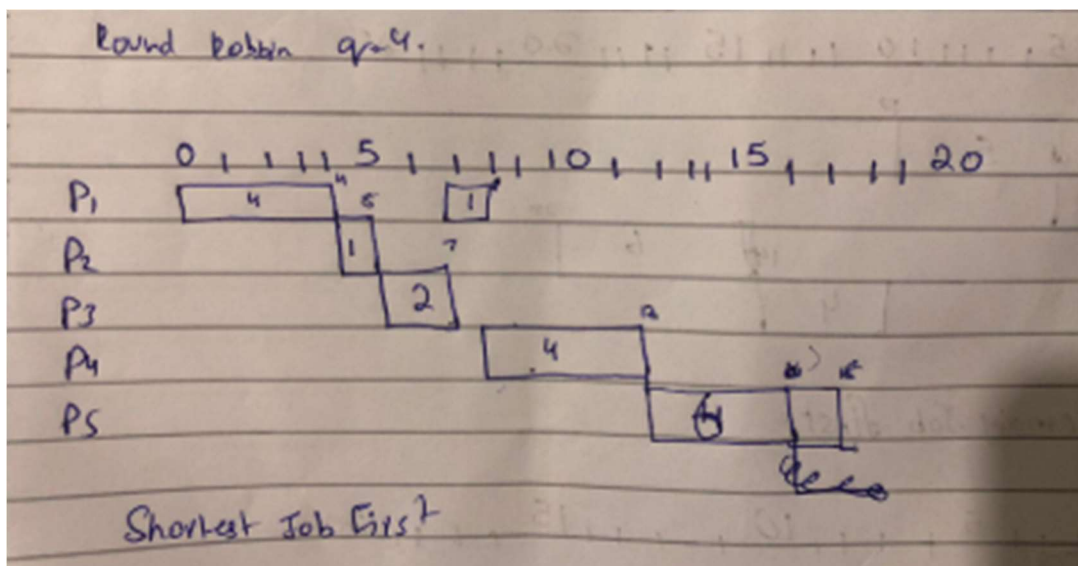 Round Robbin q=4.
0 5 10 15 20
P1 4 4 1
5
P2 1 7
P3 2
12
P4 4
P5
Shortest Job First